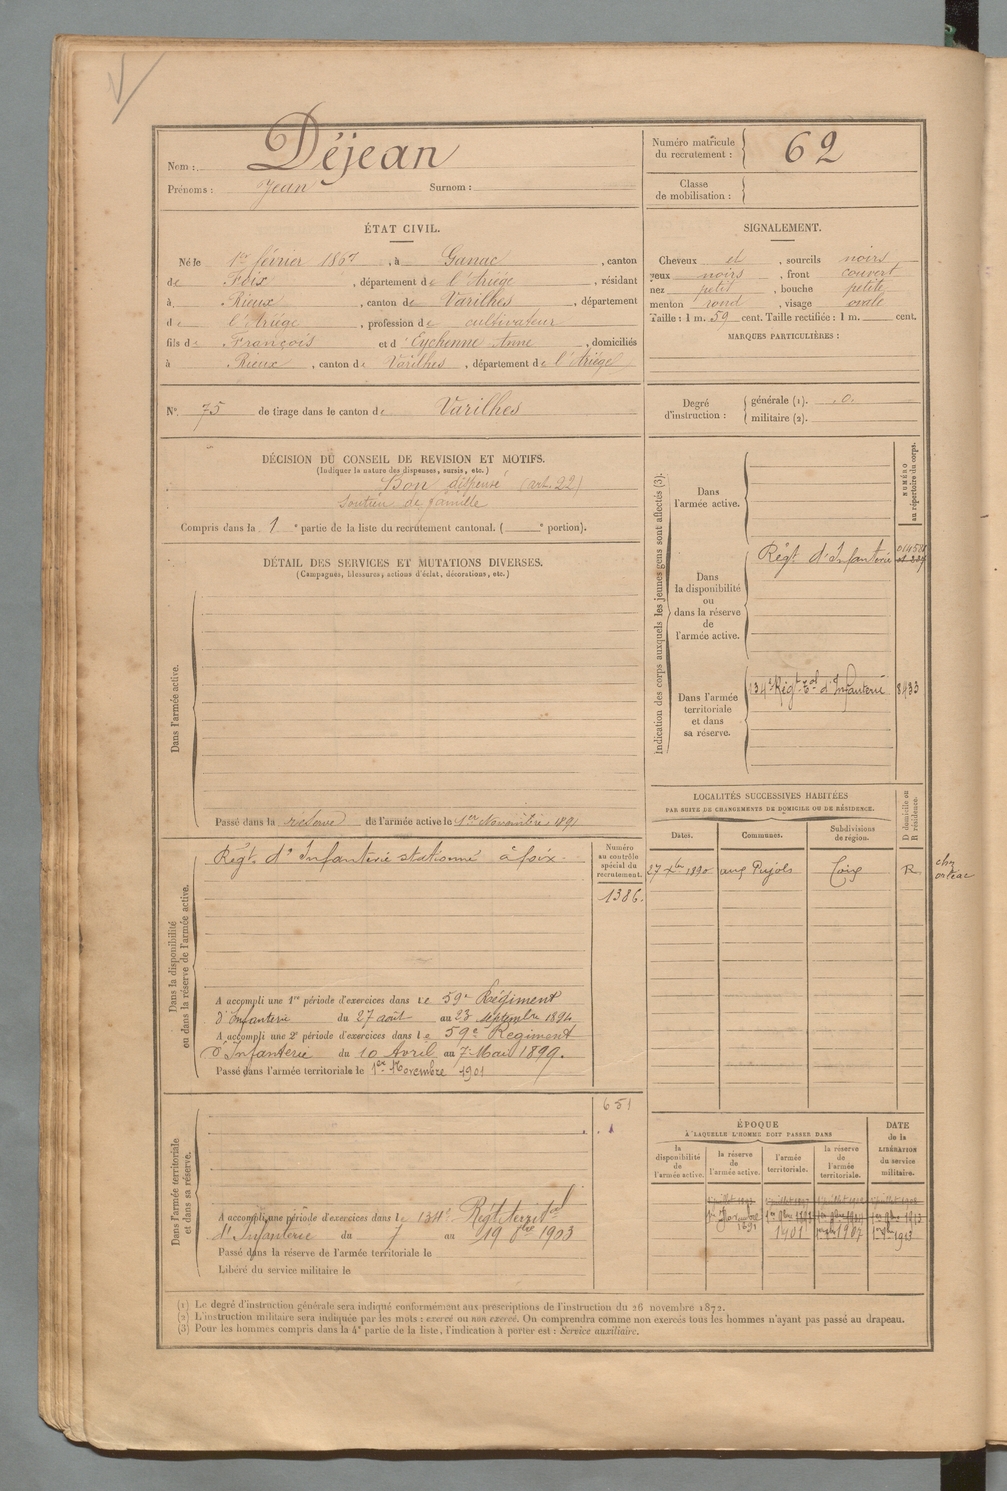 Nom : Déjean
Prénoms : Jean Surnom :
Numéro matricule du recrutement : 62
Classe de mobilisation :
ÉTAT CIVIL.
Né le 1er février 1867, à Ganac, canton
de Foix, département de l'Ariège, résidant
à Rieux, canton de Varilhes, département
de l'Ariège, profession de cultivateur
fils de François et d'Eychenne Anne, domiciliés
à Rieux, canton de Varilhes, département de l'Ariège
N° 75 de tirage dans le canton de Varilhes
SIGNALEMENT.
Cheveux et, sourcils noirs
yeux noirs, front couvert
nez petit, bouche petite,
menton rond, visage ovale
Taille : 1 m. 59 cent. Taille rectifiée : 1 m. cent.
MARQUES PARTICULIÈRES :
Degré d'instruction : générale (1). 0.
militaire (2).
DÉCISION DU CONSEIL DE REVISION ET MOTIFS.
(Indiquer la nature des dispenses, sursis, etc.)
Bon dispensé (art. 22)
Soutien de famille
Compris dans la 1e partie de la liste du recrutement cantonal. ( e portion).
DÉTAIL DES SERVICES ET MUTATIONS DIVERSES.
(Campagnes, blessures, actions d'éclat, décorations, etc.)
Dans l'armée active.
Passé dans la réserve de l'armée active le 1er Novembre 1891
Indication des corps auxquels les jeunes gens sont affectés (3).
NUMÉRO au répertoire du corps.
Dans l'armée active.
Dans la disponibilité ou dans la réserve de l'armée active.
Régt d'Infanterie
Dans l'armée territoriale et dans sa réserve.
134e Régt Tal d'Infanterie 8433
Dans la disponibilité ou dans la réserve de l'armée active.
Régt d'Infanterie stationné à foix
Numéro au contrôle spécial du recrutement.
1386.
A accompli une 1re période d'exercices dans le 59e Régiment
d'Infanterie du 27 août au 23 septembre 1894
A accompli une 2e période d'exercices dans le 59e Régiment
d'Infanterie du 10 Avril au 7 Mai 1899.
Passé dans l'armée territoriale le 1er Novembre 1901
LOCALITÉS SUCCESSIVES HABITÉES
PAR SUITE DE CHANGEMENTS DE DOMICILE OU DE RÉSIDENCE.
Dates. Communes. Subdivisions de région. D domicile ou R résidence.
27 Xbre 1890 aux Pujols Foix R.
Dans l'armée territoriale et dans sa réserve.
651
A accompli une période d'exercices dans le 134e Régt territorial
d'Infanterie du 7 au 19 Xbre 1903
Passé dans la réserve de l'armée territoriale le
Libéré du service militaire le
ÉPOQUE
À LAQUELLE L'HOMME DOIT PASSER DANS
DATE de la LIBÉRATION du service militaire.
la disponibilité de l'armée active. la réserve de l'armée active. l'armée territoriale. la réserve de l'armée territoriale.
(1) Le degré d'instruction générale sera indiqué conformément aux prescriptions de l'instruction du 26 novembre 1872.
(2) L'instruction militaire sera indiquée par les mots : exercé ou non exercé. On comprendra comme non exercés tous les hommes n'ayant pas passé au drapeau.
(3) Pour les hommes compris dans la 4e partie de la liste, l'indication à porter est : Service auxiliaire.